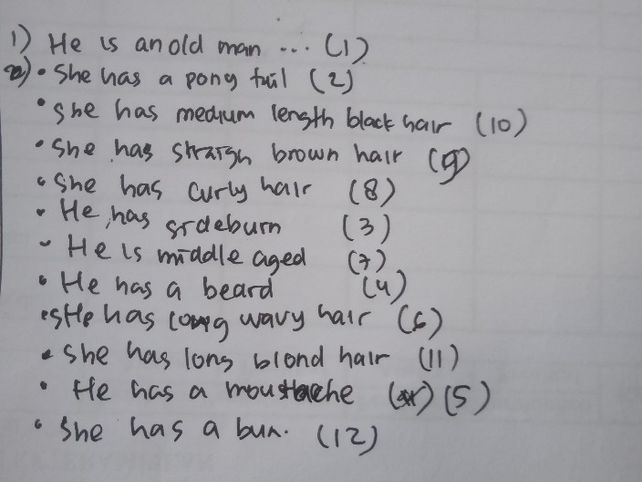 1) He is an old man ... (1)
2) • She has a pony tail (2)
• she has medium length black hair (10)
• She has straigh brown hair (9)
• She has curly hair (8)
• He has srdeburn (3)
- He is middle aged (7)
• He has a beard (4)
• sHe has long wavy hair (6)
• She has long blond hair (11)
• He has a moustache (5)
• She has a bun. (12)